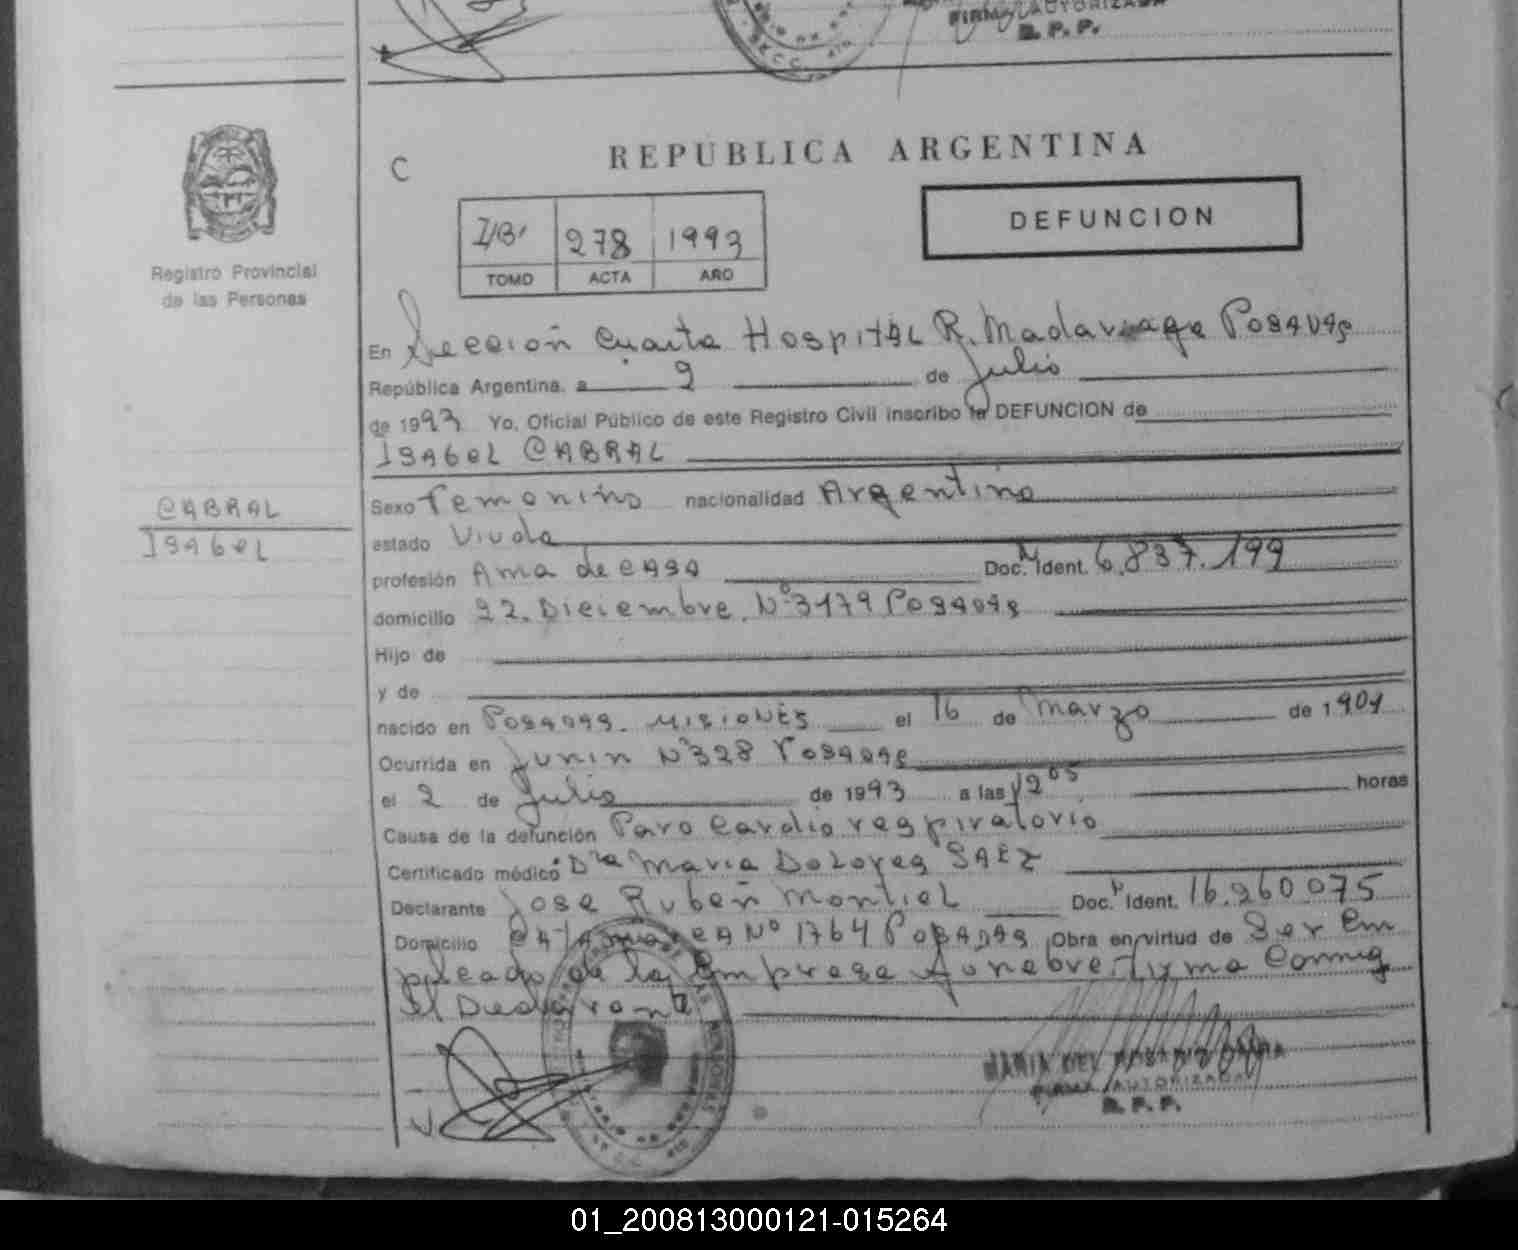 FIRMA AUTORIZADA
R. P. P.
C
REPUBLICA ARGENTINA
I/B'
278
1993
TOMO
ACTA
AÑO
DEFUNCION
Registro Provincial
de las Personas
En Sección Cuarta Hospital R. Madariaga Posadas
República Argentina, a 9 de Julio
de 1993 Yo, Oficial Público de este Registro Civil inscribo la DEFUNCION de
ISABEL CABRAL
CABRAL
ISABEL
Sexo Femenino nacionalidad Argentina
estado Viuda
profesión Ama de casa Doc. Ident. 6.837.199
domicilio 22. Diciembre. Nº 3179 Posadas
Hijo de
y de
nacido en Posadas. MISIONES el 16 de Marzo de 1901
Ocurrida en Junin Nº 328 Posadas
el 2 de Julio de 1993 a las 12 05 horas
Causa de la defunción Paro Cardio respiratorio
Certificado médico Dra Maria Dolores SAEZ
Declarante Jose Ruben Montiel Doc. Ident. 16.260.075
Domicilio Nº 1764 Posadas Obra en virtud de Ser Em
pleado de la Empresa funebre firma Conmig
el Declarante
MARIA DEL
FIRMA AUTORIZADA
R. P. P.
01_200813000121-015264